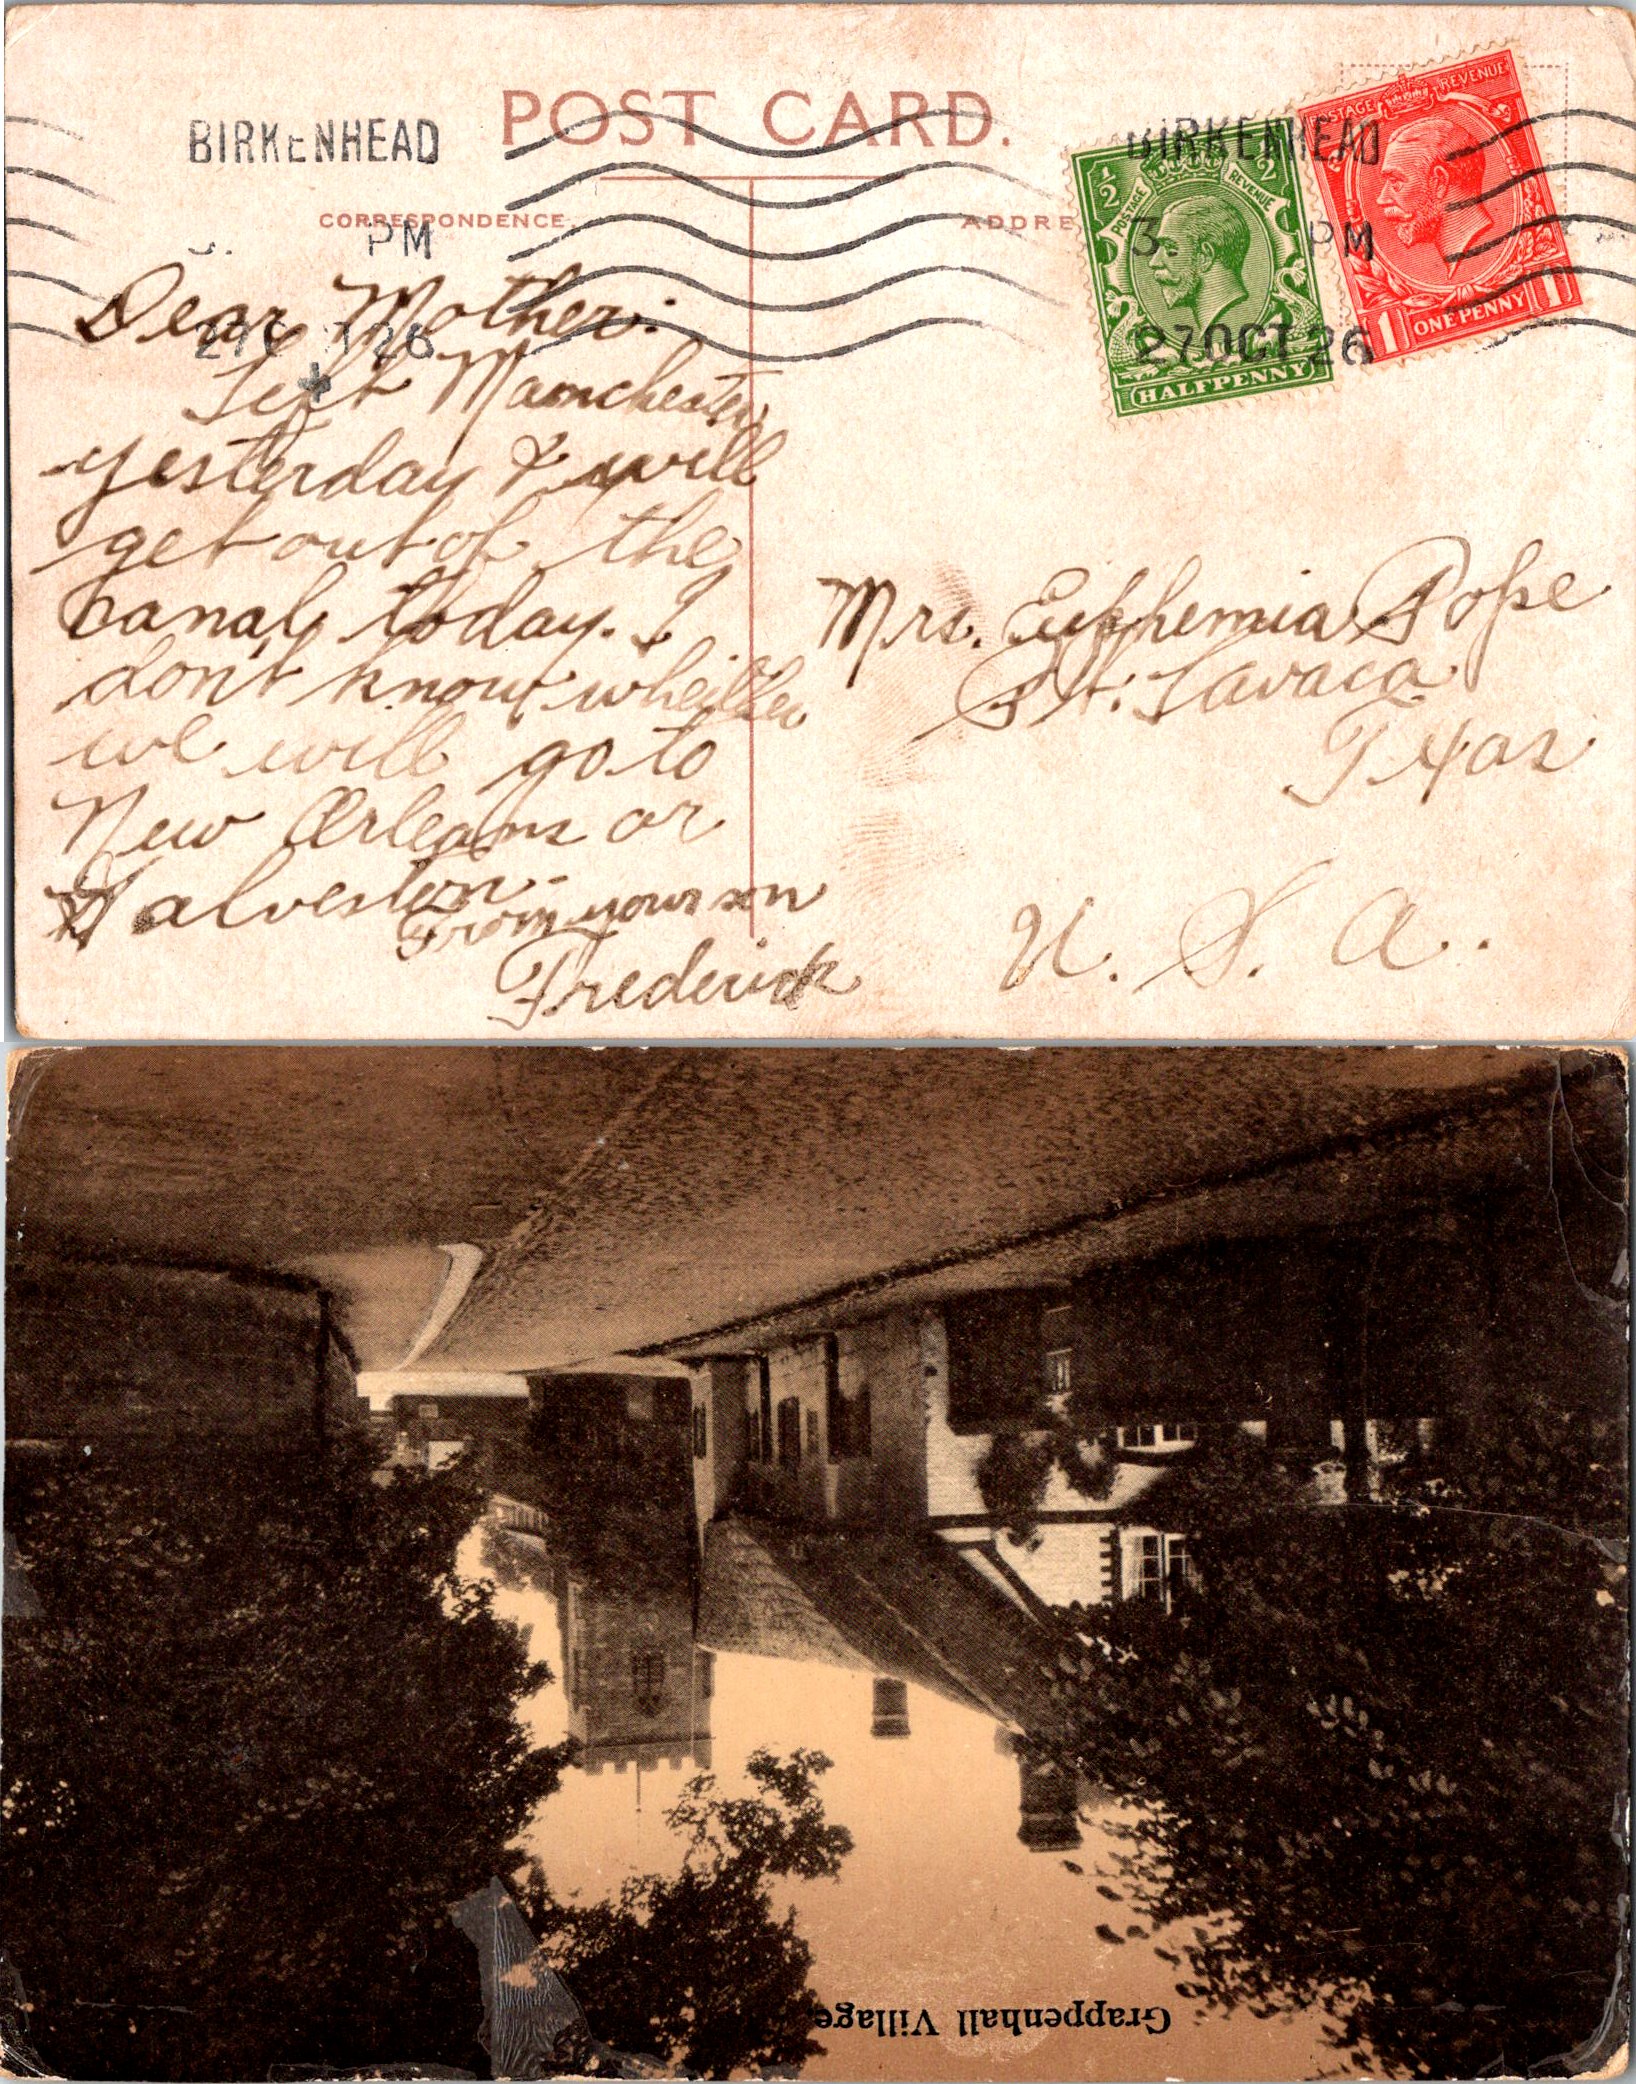 POST CARD.
CORRESPONDENCE.
ADDRE
BIRKENHEAD
PM
26
BIRKENHEAD
3. PM
27 OCT 26
½ ½
POSTAGE REVENUE
HALFPENNY
POSTAGE REVENUE
1 ONE PENNY 1
Dear Mother:
Left Manchester
yesterday & will
get out of the
canal today. I
don't know wheither
we will go to
New Orleans or
Galveston-
From your son
Frederick
Mrs. Euphemia Pope
Pt. Lavaca
Texas
U. S. A.
Grappenhall Village.